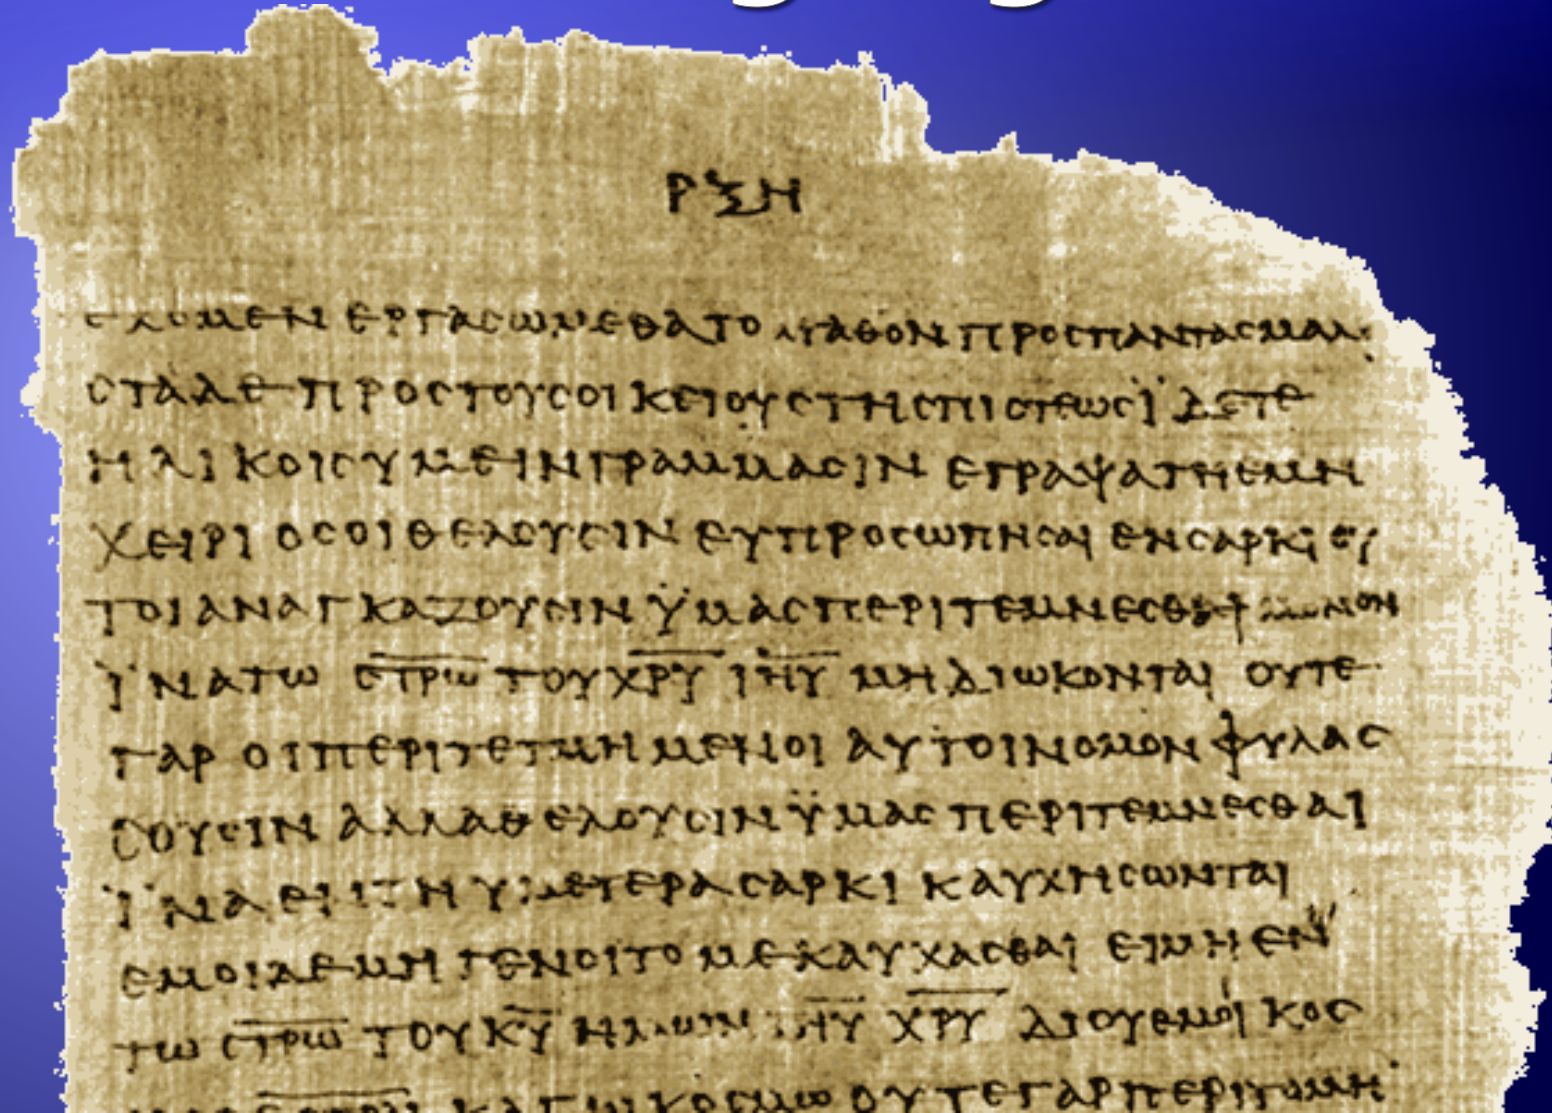 ΡΞΗ
ϹΧΟΜΕΝ ΕΡΓΑϹΩΜΕΘΑ ΤΟ ΑΓΑΘΟΝ ΠΡΟϹ ΠΑΝΤΑϹ ΜΑΛΙ
ϹΤΑ ΔΕ ΠΡΟϹ ΤΟΥϹ ΟΙΚΕΙΟΥϹ ΤΗϹ ΠΙϹΤΕΩϹ ΪΔΕΤΕ
ΗΛΙΚΟΙϹ ΥΜΕΙΝ ΓΡΑΜΜΑϹΙΝ ΕΓΡΑΨΑ ΤΗ ΕΜΗ
ΧΕΙΡΙ ΟϹΟΙ ΘΕΛΟΥϹΙΝ ΕΥΠΡΟϹΩΠΗϹΑΙ ΕΝ ϹΑΡΚΙ ΟΥ
ΤΟΙ ΑΝΑΓΚΑΖΟΥϹΙΝ ΫΜΑϹ ΠΕΡΙΤΕΜΝΕϹΘΑΙ ΜΟΝΟΝ
ΪΝΑ ΤΩ Ϲ̅Τ̅Ρ̅Ω̅ ΤΟΥ Χ̅Ρ̅Υ̅ Ι̅Η̅Υ̅ ΜΗ ΔΙΩΚΟΝΤΑΙ ΟΥΤΕ
ΓΑΡ ΟΙ ΠΕΡΙΤΕΤΜΗΜΕΝΟΙ ΑΥΤΟΙ ΝΟΜΟΝ ΦΥΛΑϹ
ϹΟΥϹΙΝ ΑΛΛΑ ΘΕΛΟΥϹΙΝ ΫΜΑϹ ΠΕΡΙΤΕΜΝΕϹΘΑΙ
ΪΝΑ ΕΝ ΤΗ ΥΜΕΤΕΡΑ ϹΑΡΚΙ ΚΑΥΧΗϹΩΝΤΑΙ
ΕΜΟΙ ΔΕ ΜΗ ΓΕΝΟΙΤΟ ΜΕ ΚΑΥΧΑϹΘΑΙ ΕΙ ΜΗ ΕΝ
ΤΩ Ϲ̅Τ̅Ρ̅Ω̅ ΤΟΥ Κ̅Υ̅ ΗΜΩΝ Ι̅Η̅Υ̅ Χ̅Ρ̅Υ̅ ΔΙ ΟΥ ΕΜΟΙ ΚΟϹ
ΚΑΓΩ ΚΟϹΜΩ ΟΥΤΕ ΓΑΡ ΠΕΡΙΤΟΜΗ